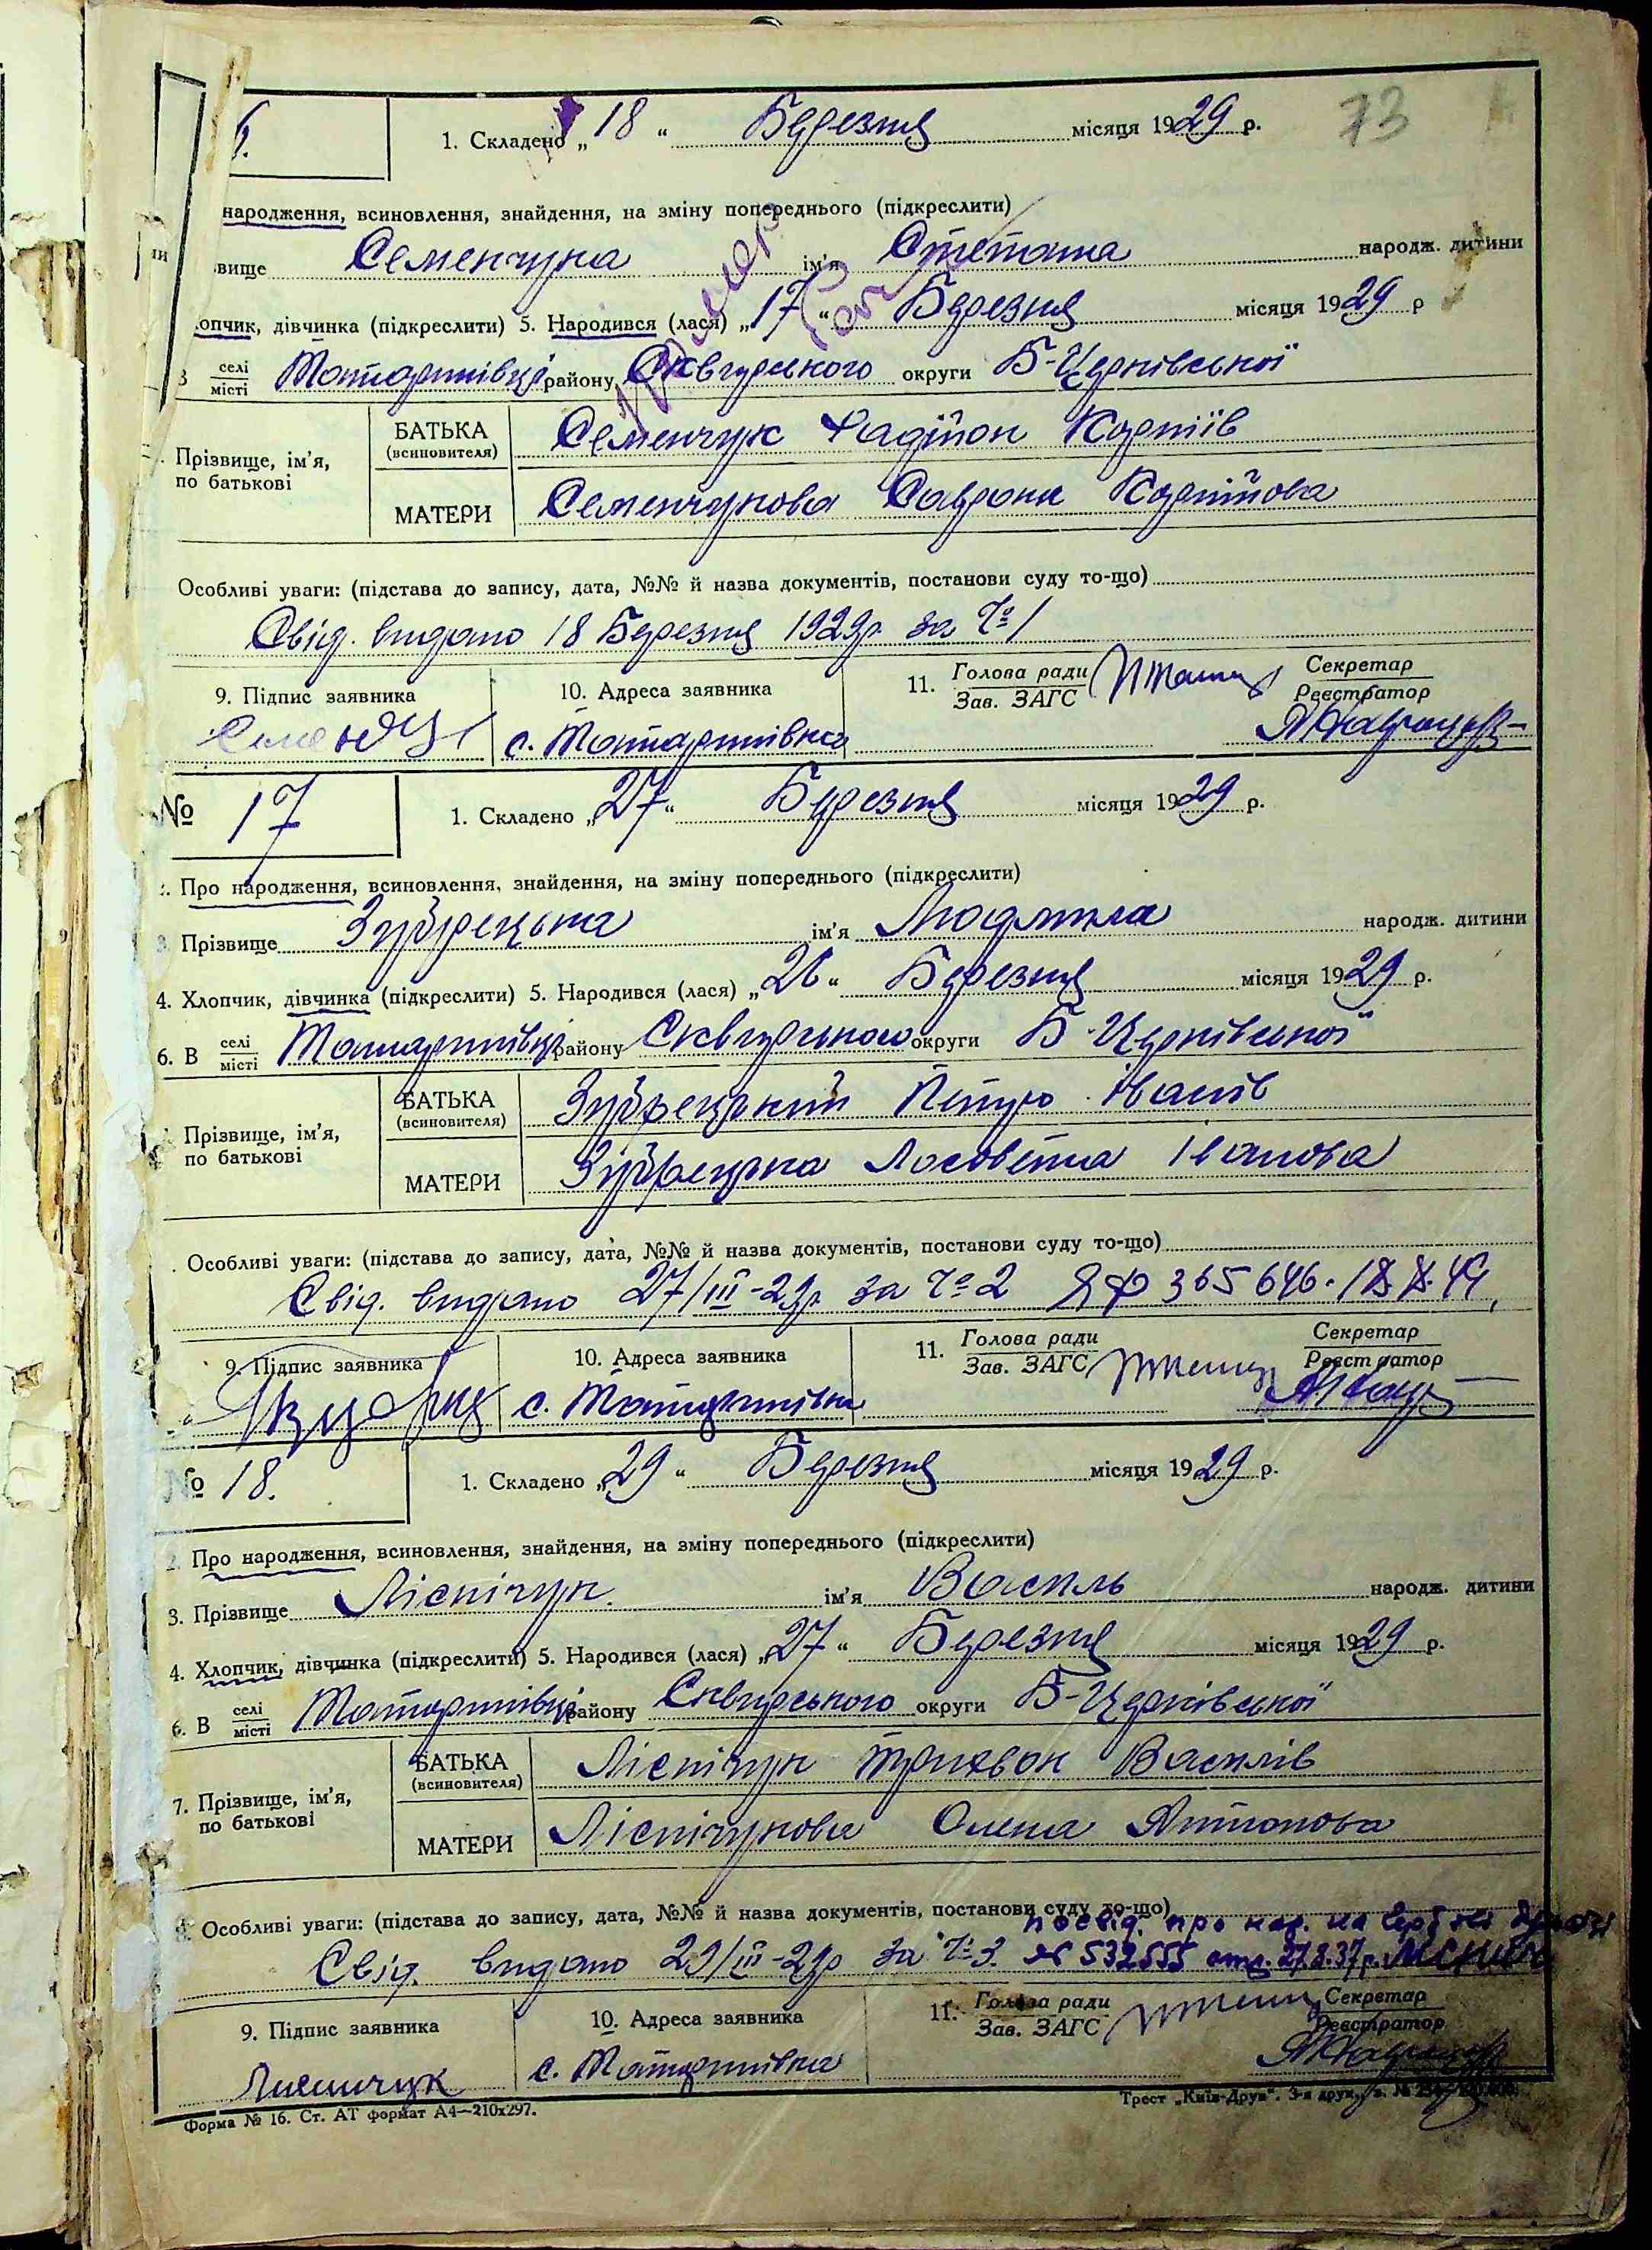 73
1. Складено „ 18 “ Березня місяця 1929 р.
народження, всиновлення, знайдення, на зміну попереднього (підкреслити)
вище Семенчука ім'я Степана народж. дитини
опчик, дівчинка (підкреслити) 5. Народився (лася) „ 17 “ Березня місяця 1929 р
В селі місті Татаринівці району Сквирського округи Б-Церківської
Прізвище, ім'я, по батькові
БАТЬКА (всиновителя) Семенчук Корніїв
МАТЕРИ Семенчукова Корнійова
Особливі уваги: (підстава до запису, дата, №№ й назва документів, постанови суду то-що)
Свід. видано 18 Березня 1929р. за Ч° 1
9. Підпис заявника 10. Адреса заявника 11. Голова ради Зав. ЗАГС Секретар Реєстратор
с. Татаринівка
№ 17 1. Складено „ 27 “ Березня місяця 1929 р.
Про народження, всиновлення, знайдення, на зміну попереднього (підкреслити)
3. Прізвище Зубрецька ім'я Людмила народж. дитини
4. Хлопчик, дівчинка (підкреслити) 5. Народився (лася) „ 26 “ Березня місяця 1929 р.
6. В селі місті Татаринівці району Сквирського округи Б-Церківської
Прізвище, ім'я, по батькові
БАТЬКА (всиновителя) Зубрецький Петро Іванів
МАТЕРИ Зубрецька Лосовета Іванова
Особливі уваги: (підстава до запису, дата, №№ й назва документів, постанови суду то-що)
Свід. видано 27/III-29р за Ч° 2 ЯФ 365646.
9. Підпис заявника 10. Адреса заявника 11. Голова ради Зав. ЗАГС Секретар Реєстратор
с. Татаринівка
№ 18. 1. Складено „ 29 “ Березня місяця 1929 р.
2. Про народження, всиновлення, знайдення, на зміну попереднього (підкреслити)
3. ПрізвищеЛіснічук ім'я Василь народж. дитини
4. Хлопчик, дівчинка (підкреслити) 5. Народився (лася) „ 27 “ Березня місяця 1929 р.
6. В селі місті Татаринівці району Сквирського округи Б-Церківської
7. Прізвище, ім'я, по батькові
БАТЬКА (всиновителя) Ліснічук Трихвон Василів
МАТЕРИ Ліснічукова Олена Антонова
Особливі уваги: (підстава до запису, дата, №№ й назва документів, постанови суду то-що)
посвід. про нар. на
Свід. видано 29/III-29р за Ч° 3. № 532555 от 27.8.37р.
9. Підпис заявника 10. Адреса заявника 11. Голова ради Зав. ЗАГС Секретар Реєстратор
Лисничук с. Татаринівка
Форма № 16. Ст. АТ формат А4—210х297.
Трест „Київ-Друк“. 3-я друк.